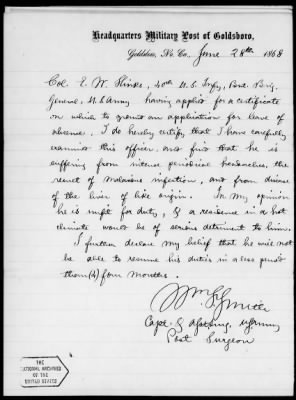 Headquarters Military Post of Goldsboro,
Goldsboro, No. Ca., June 28th 1868
Col. E. W. Hinks, 40th U.S. Infy, Bvt. Brig.
General, U.S. Army having applied for a certificate
on which to ground an application for leave of
absence. I do hereby certify that I have carefully
examined this officer, and find that he is
suffering from intense periodical headaches, the
result of malarious infection, and from disease
of the liver of like origin. In my opinion
he is unfit for duty, & a residence in a hot
climate would be of serious detriment to him.
I further declare my belief that he will not
be able to resume his duties in a less period
than (4) four months.
Capt. & Asst. Surg. U.S. Army
Post Surgeon
THE
NATIONAL ARCHIVES
OF THE
UNITED STATES